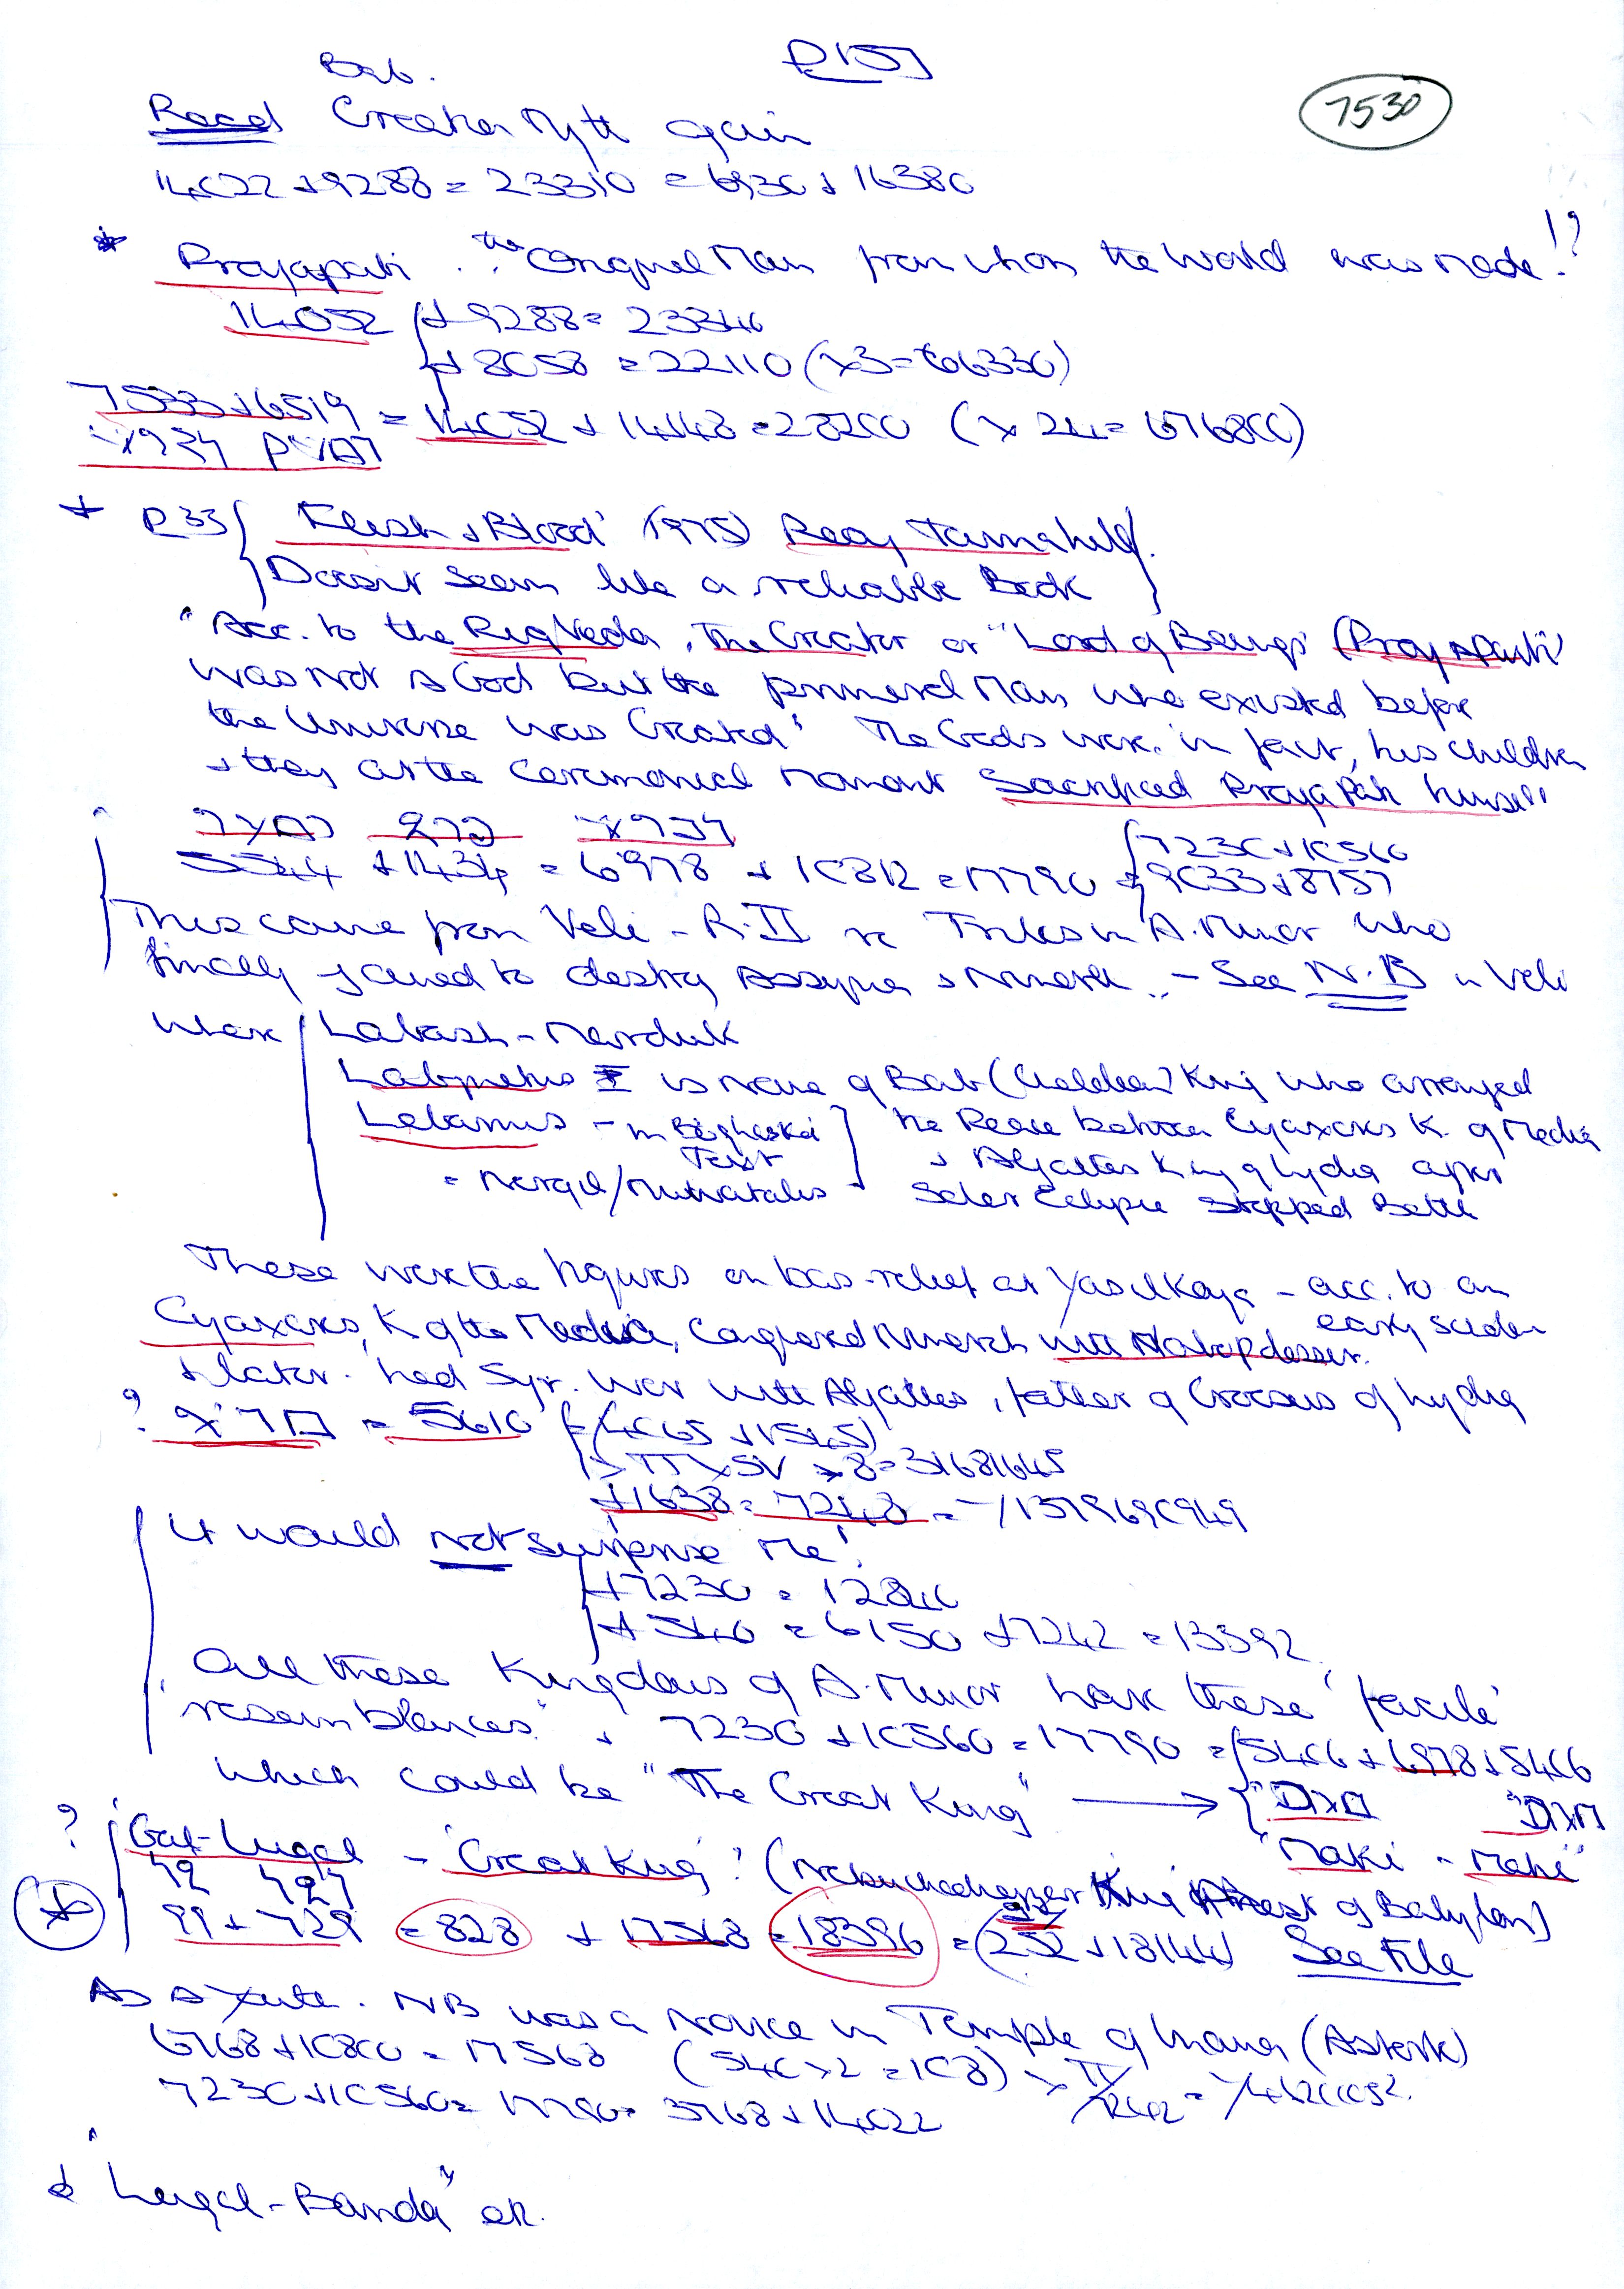 P 15
7530
Bab.
Read Creation Myth again
14022 + 9288 = 23310 = 6930 + 16380
* Prajapati . . the "Original Man from whom the World was made!" !?
14052 { + 9288 = 23340
{ + 8058 = 22110 (x3 = 66330)
7533 + 6519 = 14052 + 14148 = 28200 (x 24 = 676800)
+ P 33 { 'Flesh & Blood' (1975) Reay Tannahill.
Doesn't seem like a reliable Book }
"Acc. to the Rig Veda, The Creator or "Lord of Beings" (Prajapati)
was not a God but the primeval Man who existed before
the Universe was Created" The Gods were in fact, his children
& they at the Ceremonial moment Sacrificed Prajapati himself"
5544 + 1434 = 6978 + 10812 = 17790 = { 7230 + 10560
{ 9033 + 8757
This came from Veli - R.II re Tribes in A. Minor who
finally joined to destroy Assyria & Nineveh .. - See N.B in Veli
where Labash - Marduk
Labynetus I is name of Bab (Chaldean) King who arranged
Labarnus - in Boghaskoi Text } the Peace between Cyaxares K. of Media
= Nergil/Mutwatalis + & Alyattes King of Lydia after
Solar Eclipse stopped Battle
These were the figures on bas-relief at Yasilkaya - acc. to an
early scholar
Cyaxares, K of the Media, Conquered Nineveh with Nabopolassar.
& later had 5 yr. war with Alyattes, father of Croesus of Lydia
? = 5610 { = (4065 + 1545)
x 8 = 31681645
+ 1638 = 7248 = 
It would not surprise me!
+ 7230 = 12840
+ 540 = 6150 + 7242 = 13392
All these Kingdoms of A. Minor have these 'facile'
resemblances" + 7230 + 10560 = 17790 = { 5406 + 6978 + 5406
which could be "The Great King" →
? Gal-Lugal - 'Great King'? (Nebuchadnezzar King of Babylon) "Maki - Maki"
* 99 + 729 = 828 + 17568 = 18396 = (252 + 18144) See File
As a Youth. NB was a novice in Temple of Inana (Astarte)
6768 + 10800 = 17568 (540 x 2 = 108) x π
7230 + 10560 = 17790 = 3768 + 14022
& "Lugal-Banda" etc.